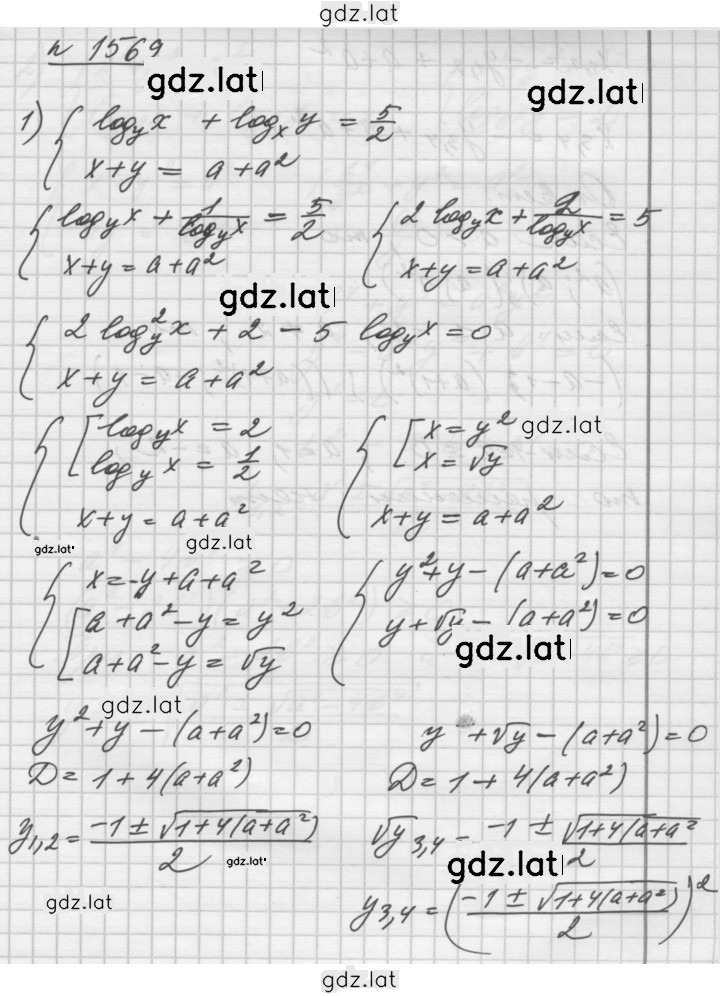 gdz.lat
n 1569
gdz.lat
gdz.lat
1) { log_y x + log_x y = 5/2
x+y = a+a²
{ log_y x + 1/log_y x = 5/2 { 2 log_y x + 2/log_y x = 5
x+y = a+a² x+y = a+a²
gdz.lat
{ 2 log²_y x + 2 - 5 log_y x = 0
x+y = a+a²
{ [ log_y x = 2 { [ x = y² gdz.lat
log_y x = 1/2 x = √y
x+y = a+a² x+y = a+a²
gdz.lat gdz.lat
{ x = -y+a+a² { y²+y-(a+a²)=0
[ a+a²-y = y² y+√y-(a+a²)=0
a+a²-y = √y gdz.lat
gdz.lat
y²+y-(a+a²)=0 y+√y-(a+a²)=0
D = 1+4(a+a²) D = 1+4(a+a²)
y₁,₂ = (-1±√(1+4(a+a²)))/2 √y₃,₄ = (-1±√(1+4(a+a²))/2
gdz.lat gdz.lat
gdz.lat y₃,₄ = ((-1±√(1+4(a+a²)))/2)²
gdz.lat